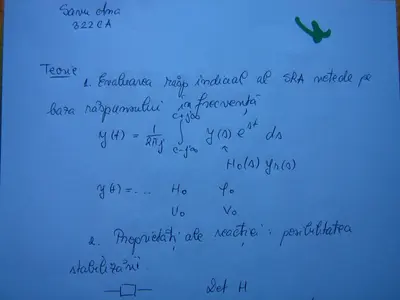 Savu Ana
322CA
Teorie
1. Evaluarea răsp indicial al SRA netede pe
baza răspunsului în frecvență
y(t) = 1/2πj ∫ c-j∞ c+j∞ y(s) e^st ds
H₀(s) yᵣ(s)
y(t) = ... H₀ φ₀
U₀ V₀
2. Proprietăți ale reacției : posibilitatea
stabilizării.
Def H